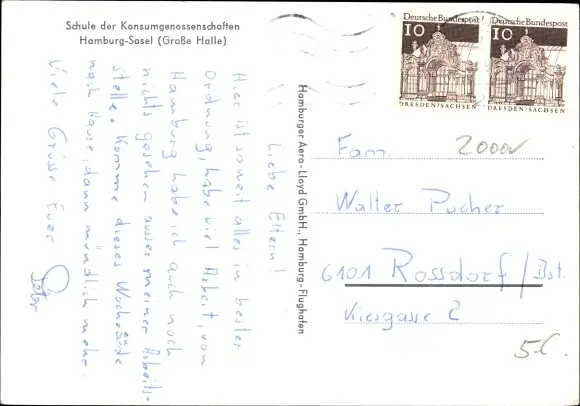 Schule der Konsumgenossenschaften
Hamburg-Sasel (Große Halle)
Liebe Eltern!
Hier ist soweit alles in bester
Ordnung, habe viel Arbeit, von
Hamburg habe ich auch noch
nichts gesehen ausser meiner Arbeits-
stelle. Komme dieses Wochenende
nach Hause, dann mündlich mehr.
Viele Grüsse Euer
Peter
Hamburger Aero-Lloyd GmbH., Hamburg-Flughafen
Deutsche Bundespost
10
DRESDEN/SACHSEN
Deutsche Bundespost
10
DRESDEN/SACHSEN
Fam.
Walter Pucher
6101 Rossdorf/Dst.
Kiesgasse 2